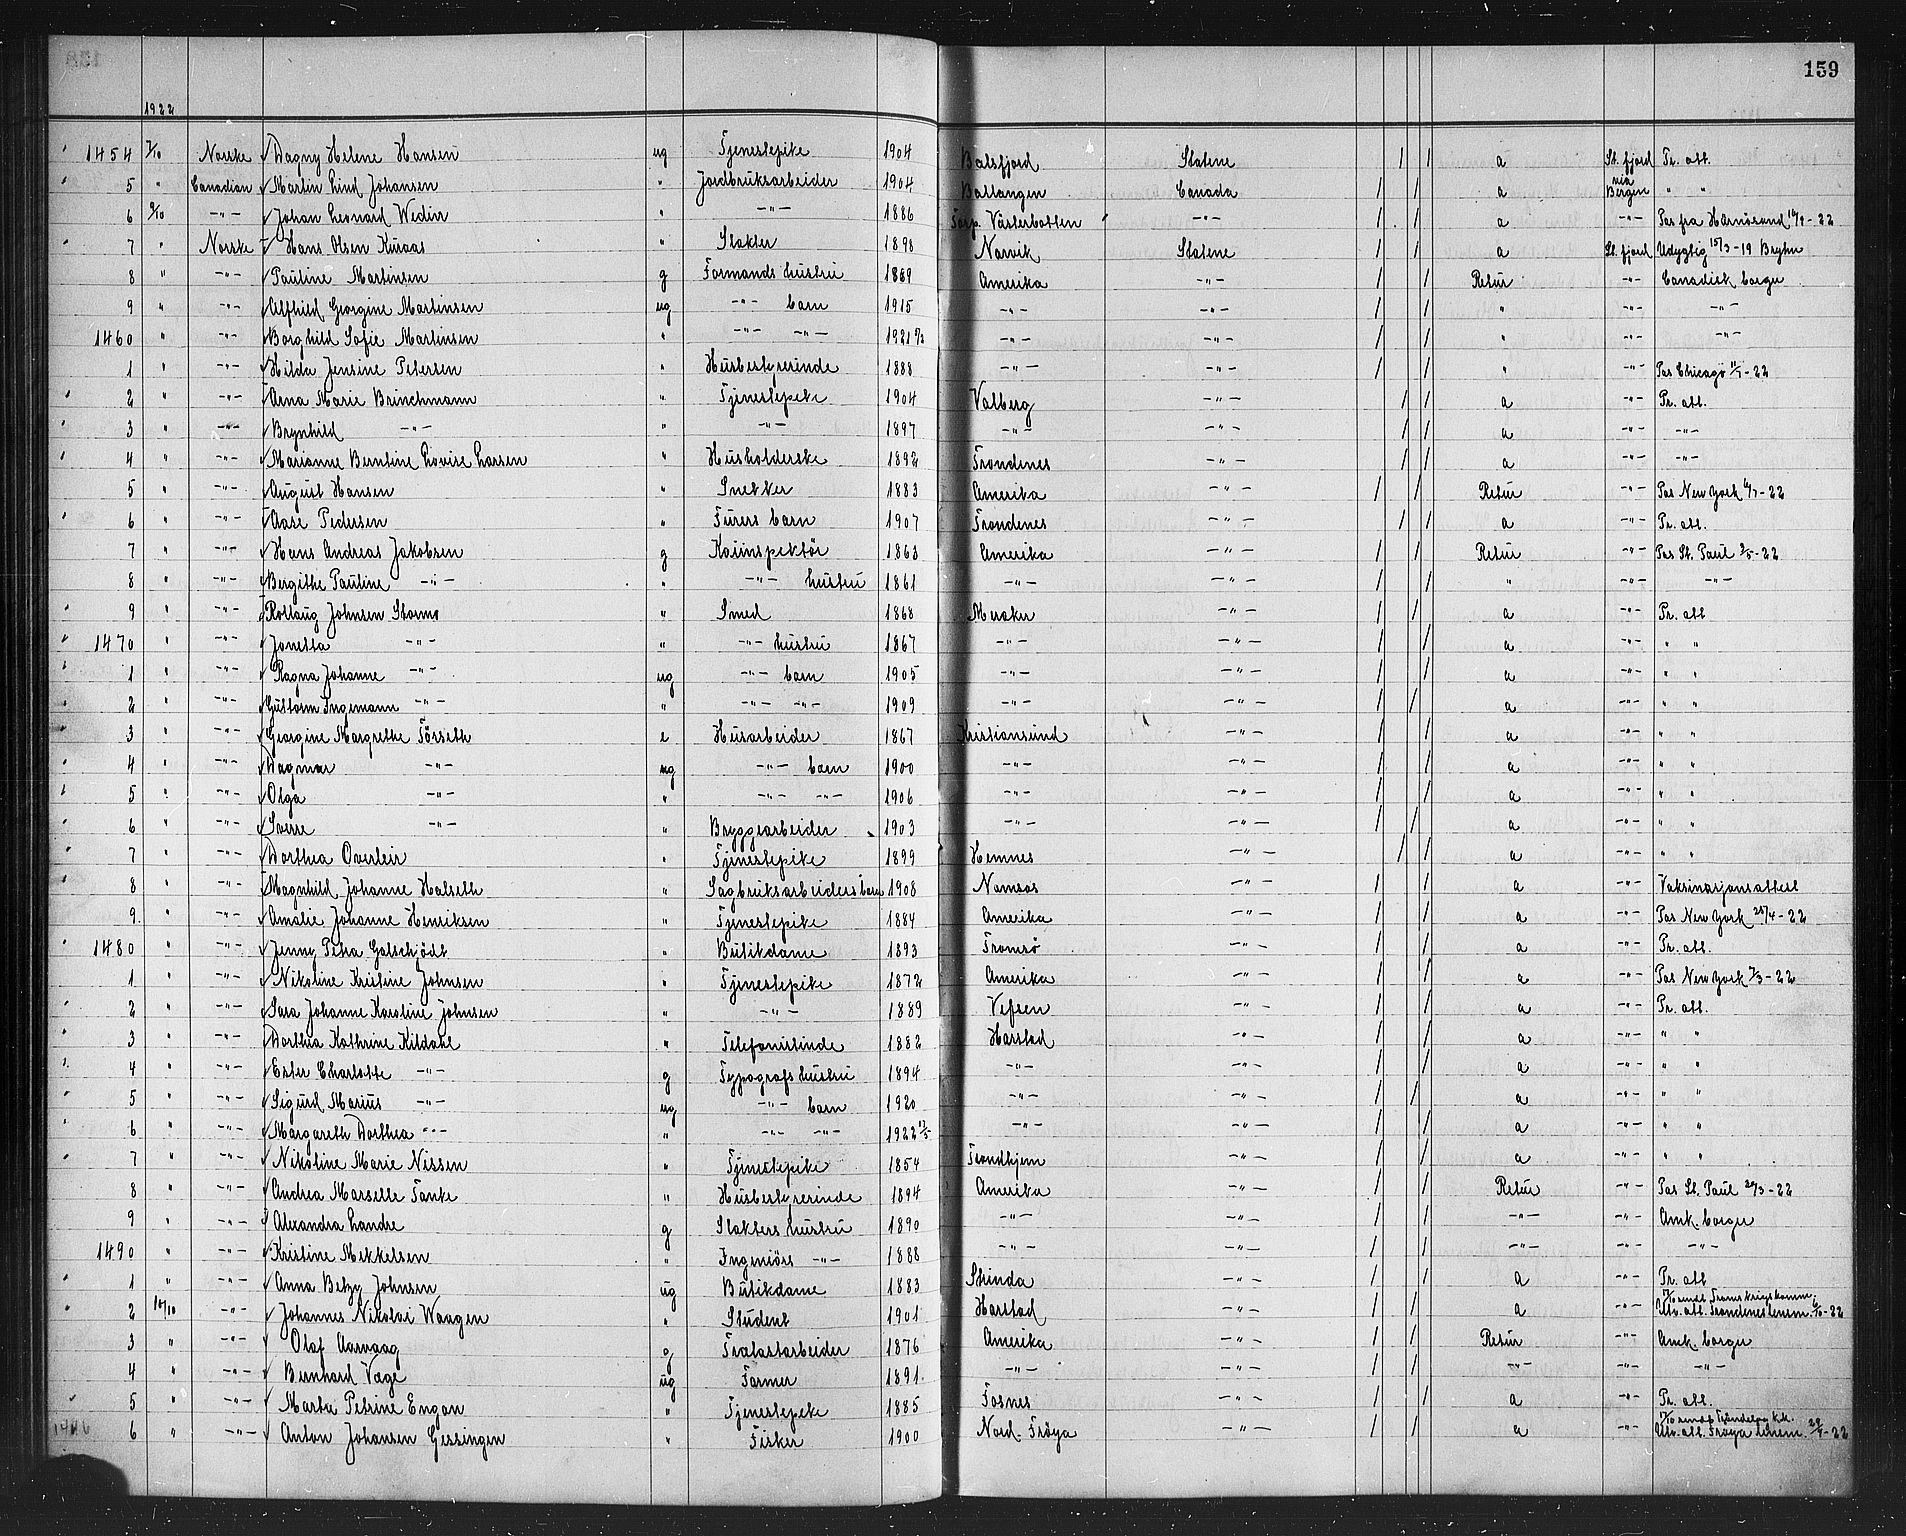 159
1922
1454 7/10 Norske Dagny Helene Hansen ug Tjenestepike 1904 Balsfjord Statene / / a St. fjord Pr. att.
5 " Canadian Martin Lind Johansen " Jordbruksarbeider 1904 Ballangen Canada / / a via Bergen " "
6 9/10 -"- Johan Leonard Wedin " -"- 1886 Torp. Västerbotten -"- / / a -"- Pas fra Härnösand -22
7 " Norske Hans Olsen Kuraas " Slakter 1898 Narvik Statene / / a St. fjord Udygtig 15/3-19 Bryhn
8 " -"- Pauline Martinsen g Formands hustru 1889 Amerika -"- / / Retur -"- Canadisk borger
9 " -"- Alfhild Georgine Martinsen ug -"- barn 1915 -"- -"- / / " -"- -"-
1460 " -"- Borghild Sofie Martinsen " -"- -"- 1921 -"- -"- / / " -"- -"-
1 " -"- Hilda Jensine Petersen " Husbestyrerinde 1888 -"- -"- / / " -"- Pas Chicago -22
2 " -"- Arna Marie Brinchmann " Tjenestepike 1904 Valberg -"- / / a -"- Pr. att.
3 " -"- Brynhild -"- " -"- 1897 -"- -"- / / a -"- -"-
4 " -"- Marianne Berntine Lovise Larsen " Husholderske 1892 Trondenes -"- / / a -"- -"-
5 " -"- August Hansen " Snekker 1883 Amerika -"- / / Retur -"- Pas New York -22
6 " -"- Aase Pedersen " Furers barn 1907 Trondenes -"- / / a -"- Pr. att.
7 " -"- Hans Andreas Jakobsen g Kaiinspektör 1863 Amerika -"- / / Retur -"- Pas St. Paul 2/5-22
8 " -"- Bergithe Pauline -"- " -"- hustru 1861 -"- -"- / / " -"- -"-
9 " -"- Rollaug Johnsen Stormo " Smed 1868 Meraker -"- / / a -"- Pr. att
1470 " -"- Jonetta -"- " -"- hustru 1867 -"- -"- / / a -"- " "
1 " -"- Ragna Johanne -"- ug -"- barn 1905 -"- -"- / / a -"- " "
2 " -"- Guttorm Ingemann -"- " -"- -"- 1909 -"- -"- / / a -"- " "
3 " -"- Georgine Margrethe Törseth e Husarbeider 1867 Kristiansund -"- / / a -"- " "
4 " -"- Dagmar -"- ug -"- barn 1900 -"- -"- / / a -"- " "
5 " -"- Olga -"- " -"- -"- 1906 -"- -"- / / a -"- " "
6 " -"- Sverre -"- " Bryggearbeider 1903 -"- -"- / / a -"- " "
7 " -"- Dorthea Overleir " Tjenestepike 1899 Hemnes -"- / / a -"- " "
8 " -"- Magnhild Johanne Halseth " Sagbruksarbeiders barn 1908 Namsos -"- / / a -"- Vaksinasjonsattest
9 " -"- Amalie Johanne Henriksen " Tjenestepike 1884 Amerika -"- / / a -"- Pas New York 25/4-22
1480 " -"- Jenny Petra Galschjödt " Butikdame 1893 Tromsö -"- / / a -"- Pr. att.
1 " -"- Nikoline Kristine Johnsen " Tjenestepike 1872 Amerika -"- / / a -"- Pas New York 7/3-22
2 " -"- Sara Johanne Karoline Johnsen " -"- 1889 Vefsen -"- / / a -"- Pr. att.
3 " -"- Dorthea Kathrine Kildahl " Telefonistinde 1882 Harstad -"- / / a -"- " "
4 " -"- Ester Charlotte -"- g Typografs hustru 1894 -"- -"- / / a -"- " "
5 " -"- Sigurd Marius -"- ug -"- barn 1920 -"- -"- / / a -"- " "
6 " -"- Margareth Dorthea -"- " -"- -"- 1922 -"- -"- / / a -"- " "
7 " -"- Nikoline Marie Nissen " Tjenestepike 1854 Trondhjem -"- / / a -"- " "
8 " -"- Andrea Marselle Tanke " Husbestyrerinde 1894 Amerika -"- / / Retur -"- Pas St. Paul 20/3-22
9 " -"- Alexandra Landre g Slakters hustru 1890 -"- -"- / / -"- -"- Amk. borger
1490 " -"- Kristine Mikkelsen " Ingeniörs -"- 1888 -"- -"- / / -"- -"- -"-
1 " -"- Anna Betzy Johnsen ug Butikdame 1883 Strinda -"- / / a -"- Pr. att
2 10/10 -"- Johannes Nikolai Waagen " Student 1901 Harstad -"- / / a -"- Utv. att. Trondenes lensm. 6/10-22
3 " -"- Olaf Aarvaag g Trælastarbeider 1876 Amerika -"- / / Retur -"- Amk. borger
4 " -"- Bernhard Vage ug Farmer 1891 -"- -"- / / -"- -"- -"-
5 " -"- Marta Petrine Engan " Tjenestepike 1885 Fosnes -"- / / a -"- Pr. att.
6 " -"- Anton Johansen Gessingen " Fisker 1900 Nord-Fröya -"- / / a -"- Utv. att. Fröya lensm. -22